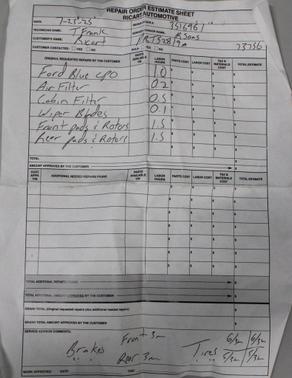 REPAIR ORDER ESTIMATE SHEET
RICART AUTOMOTIVE
DATE: 7-25-25
TECHNICIAN NAME: T Frank
CUSTOMER'S NAME: Ricart
CUSTOMER CONTACTED: YES NO
23756
ORIGINAL REQUESTED REPAIRS (ITEMS) PARTS AVAILABLE Y/N LABOR HOURS PARTS COST LABOR COST TAX & MATERIALS COST TOTAL ESTIMATE
Ford Blue CPO 1.0
Air Filter 0.2
Cabin Filter 0.5
Wiper Blades 0.1
Front pads & Rotors 1.5
Rear pads & Rotors 1.5
TOTAL:
AMOUNT APPROVED BY THE CUSTOMER
ADDITIONAL NEEDED REPAIRS FOUND PARTS AVAILABLE Y/N LABOR HOURS PARTS COST LABOR COST TAX & MATERIALS COST TOTAL ESTIMATE
TOTAL ADDITIONAL REPAIRS
TOTAL ADDITIONAL AMOUNT APPROVED BY THE CUSTOMER
GRAND TOTAL (Original requested repairs plus additional needed repairs)
GRAND TOTAL AMOUNT APPROVED BY THE CUSTOMER
SERVICE ADVISOR COMMENTS:
Brakes Front 3mm Tires 6/32 6/32
Rear 3mm 5/32 7/32
WORK APPROVED DATE TIME